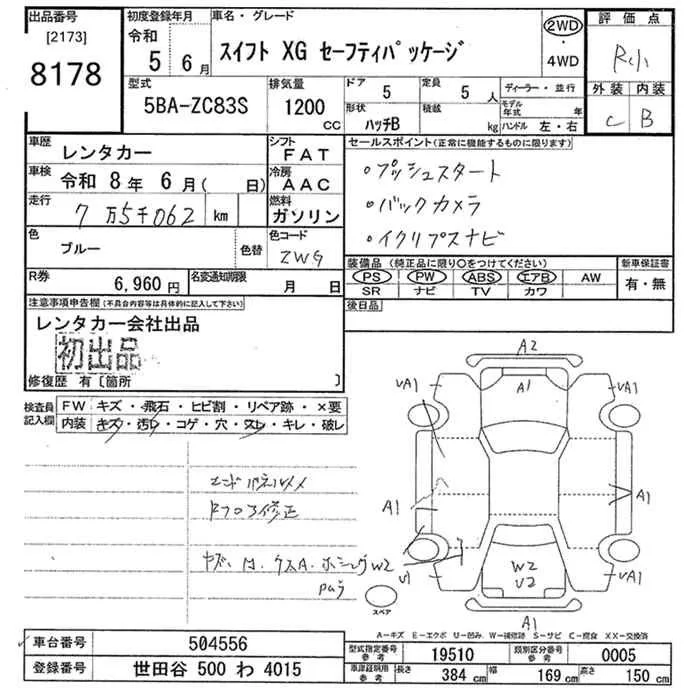 出品番号
[2173]
8178
初度登録年月
令和
5 6月
車名・グレード
スイフト XG セーフティパッケージ
2WD
・
4WD
評価点
R小
外装 内装
C B
型式
5BA-ZC83S
排気量
1200
CC
ドア
5
定員
5人
形状
ハッチB
積載
kg
ディーラー・並行
モデル年式 年
ハンドル 左・右
車歴
レンタカー
シフト
FAT
車検
令和 8年 6月( 日)
冷房
AAC
走行
7万5千062 km
燃料
ガソリン
色
ブルー
色替
色コード
ZWG
R券
6,960円
名変通知期限
月 日
セールスポイント(正常に機能するものに限ります)
・プッシュスタート
・バックカメラ
・イクリプスナビ
装備品(純正品に限り○をつけてください)
PS PW ABS エアB AW
SR ナビ TV カワ
新車保証書
有・無
後日品
注意事項申告欄(不具合内容等は具体的に記入して下さい)
レンタカー会社出品
初出品
修復歴 有〔箇所 〕
検査員
記入欄
FW キズ・飛石・ヒビ割・リペア跡・×要
内装 キズ・汚レ・コゲ・穴・スレ・キレ・破レ
エンドパネル
修正
W2
A2
A1
VA1
VA1
A1
A1
W2
V2
VA1
A1
スペア
A-キズ E-エクボ U-凹み W-補修跡 S-サビ C-腐食 XX-交換済
車台番号
504556
登録番号
世田谷 500 わ 4015
型式指定番号
参考
19510
類別区分番号
参考
0005
車庫証明用
参考
長さ 384 cm
幅 169 cm
高さ 150 cm